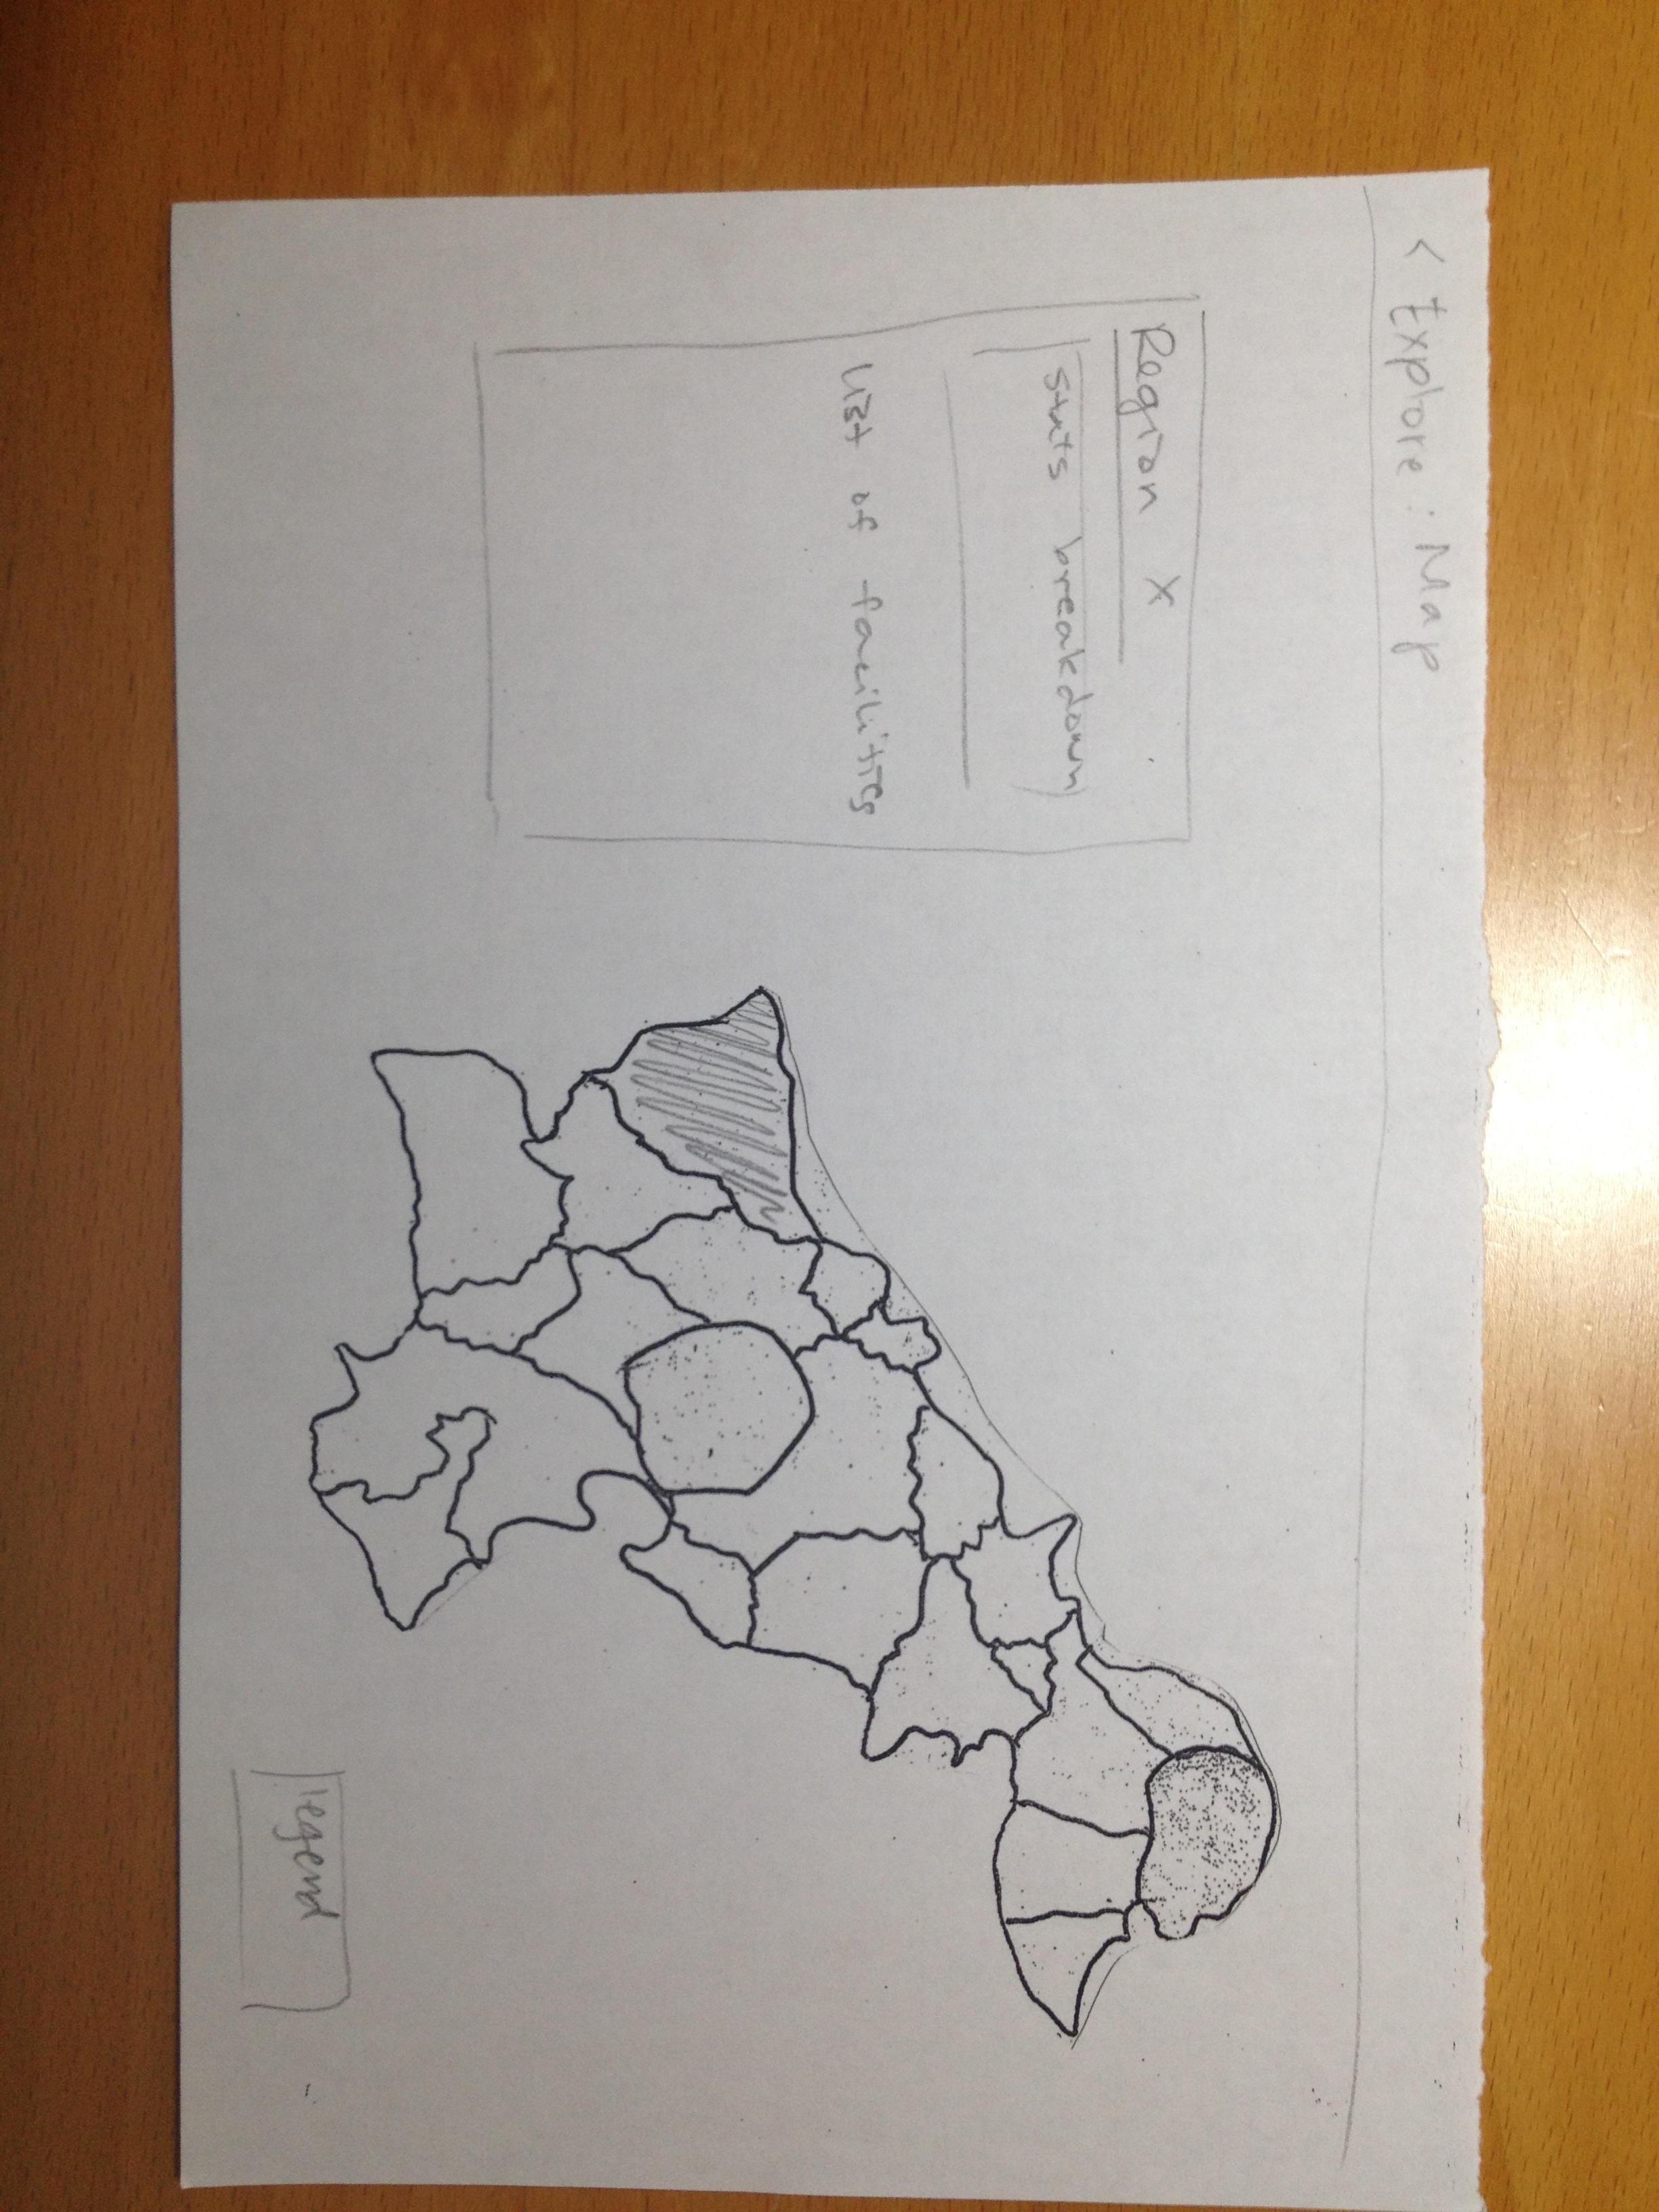 < Explore : Map
Region X
stats breakdown
list of facilities
legend